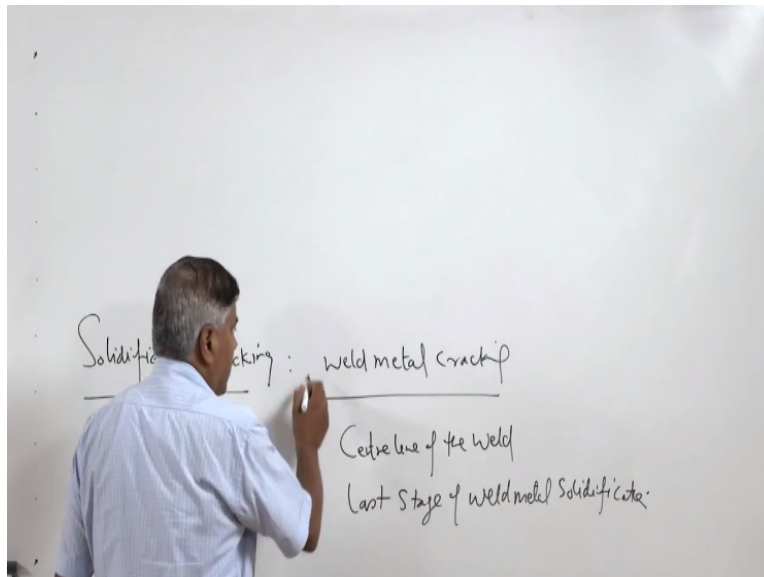 Solidifi cking : weld metal cracking
Centre line of the weld
Last stage of weld metal solidification